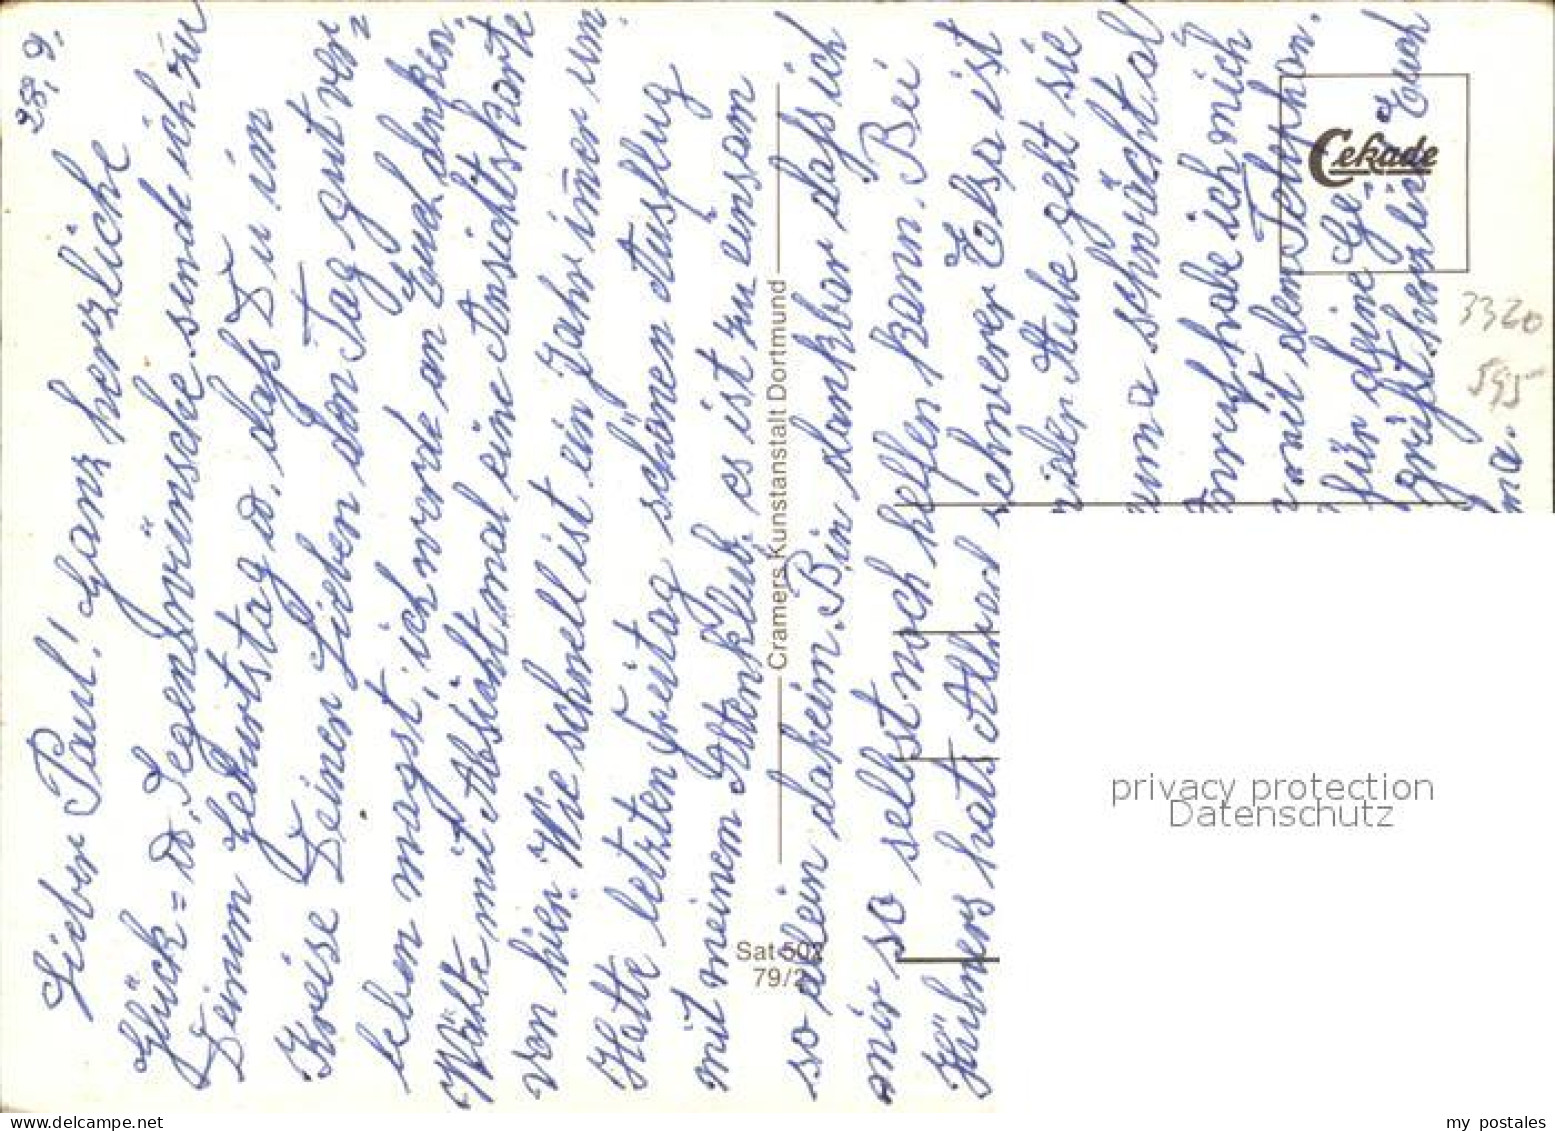 28. 9.
Lieber Paul! Ganz herzliche
Glück= u. Segenswünsche sende ich zu
Deinem Geburtstag u. daß Du im
Kreise Deiner Lieben den Tag gut ver=
leben magst, ich werde an Euch denken.
Wählte mit Absicht mal eine Ansichtskarte
von hier. Wie schnell ist ein Jahr immer um.
Hatte letzten Freitag schönen Ausflug
mit meinem Altenklub, es ist zu einsam
so allein daheim. Bin dankbar daß ich
mir so selbst noch helfen kann. Bei
Hübners hats Alfred schwerer Elsa ist
in der Stube geht sie
schwächt al
Anruf habe ich mich
mit dem Telephon.
für deine Ge
es grüßt herzlich Euch
ma.
Cramers Kunstanstalt Dortmund
Sat 502
79/2
Cekade
3320
595
privacy protection
Datenschutz
my postales